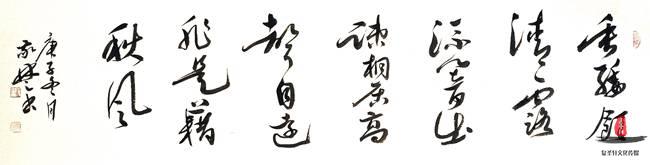 垂緌飲
清露
流響出
疎桐居高
聲自遠
非是藉
秋風
庚子月